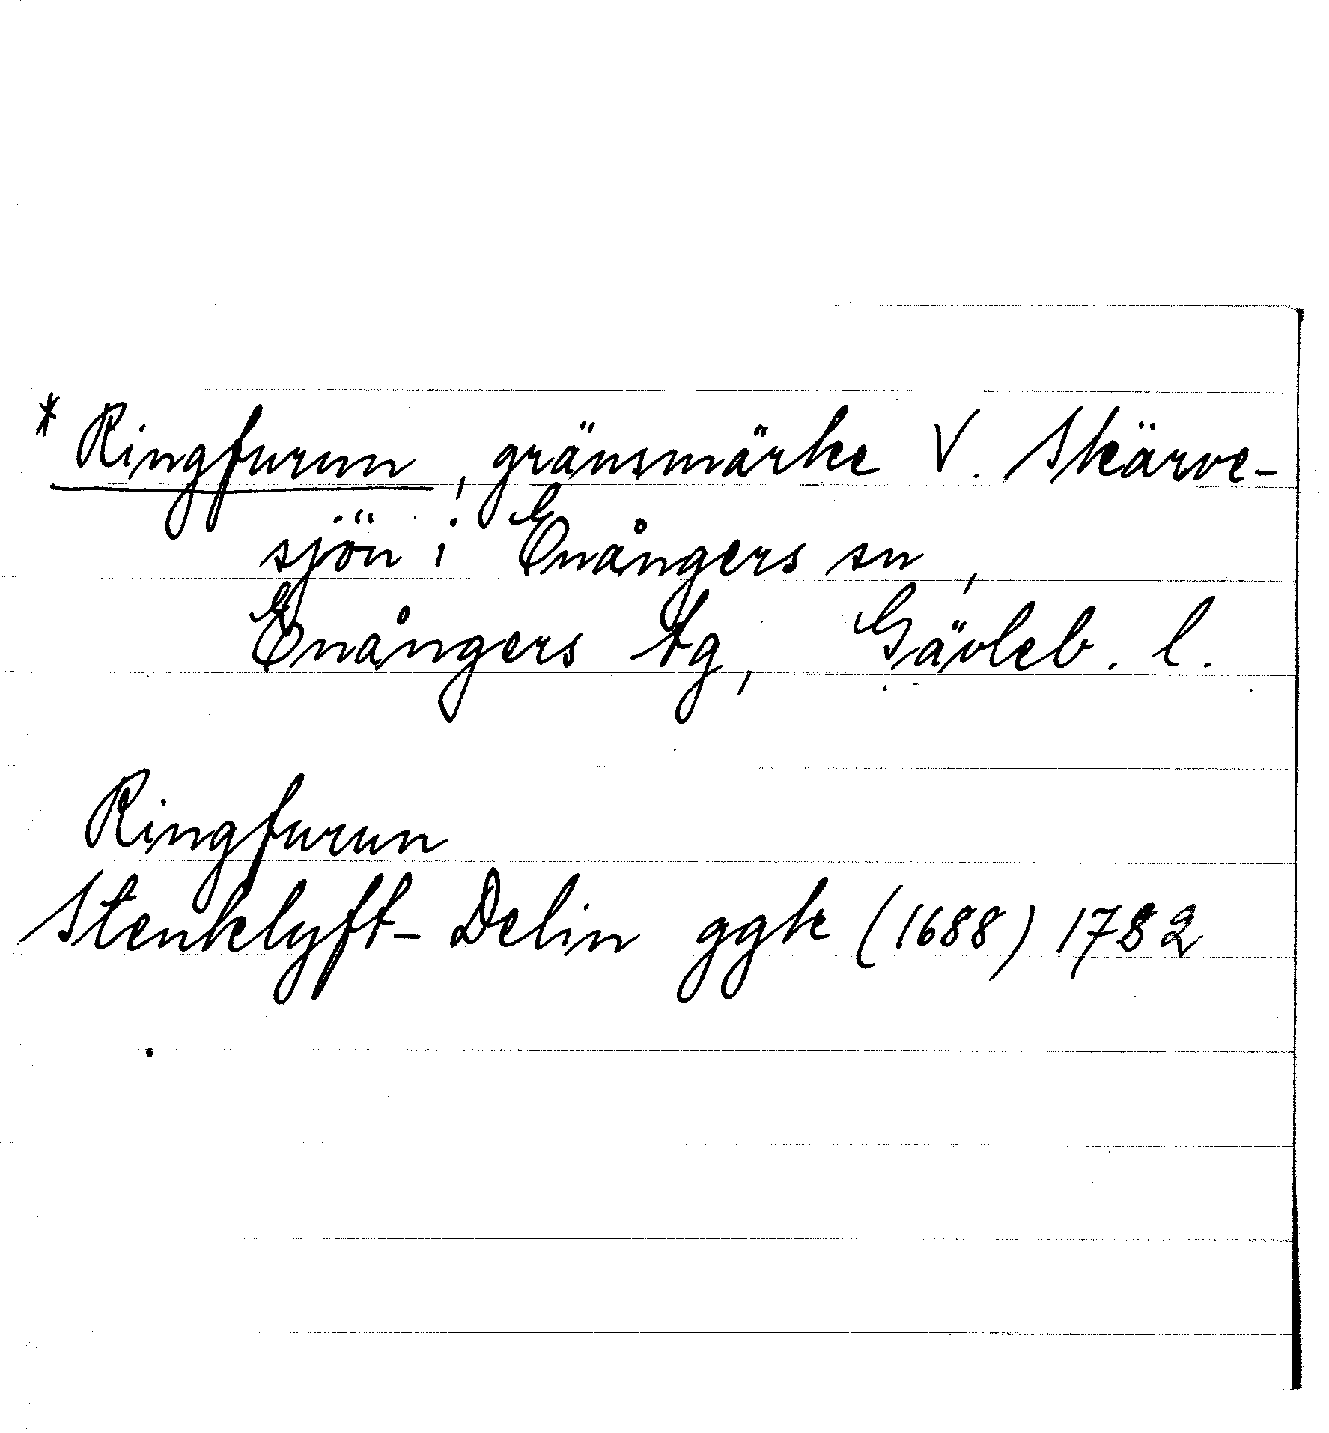 * Ringfurun, gränsmärke V. Skärve-
sjön i Enångers sn,
Enångers tg, Gävleb. l.
Ringfurun
Stenklyft-Delin ggk (1688) 1782